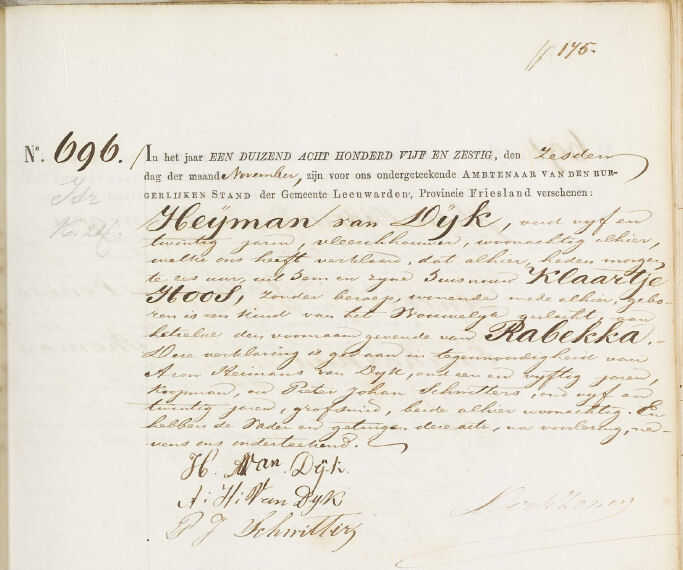 ff 175.
N°. 696.
Isr
In het jaar EEN DUIZEND ACHT HONDERD VIJF EN ZESTIG, den zesden
dag der maand November, zijn voor ons ondergeteekende AMBTENAAR VAN DEN BUR-
GERLIJKEN STAND der Gemeente Leeuwarden, Provincie Friesland verschenen:
Heijman van Dijk, oud vijf en
twintig jaren, vleeschhouwer, woonachtig alhier,
welke ons heeft verklaard, dat alhier, heden morgen
te zes uur, uit hem en zijne huisvrouw Klaartje
Hoos, zonder beroep, wonende mede alhier, gebo-
ren is een kind van het Vrouwelijk geslacht, aan
hetzelve den voornaam gevende van Rabekka.-
Deze verklaring is gedaan in tegenwoordigheid van
Aron Heimans van Dijk, oud een en vijftig jaren,
koopman, en Pieter Johan Schwitters, oud vijf en
twintig jaren, grofsmid, beide alhier woonachtig. En
hebben de Vader en getuigen deze acte, na voorlezing, ne-
vens ons onderteekend.
H. van Dijk.
A. H. Van Dyk
P J Schwitters